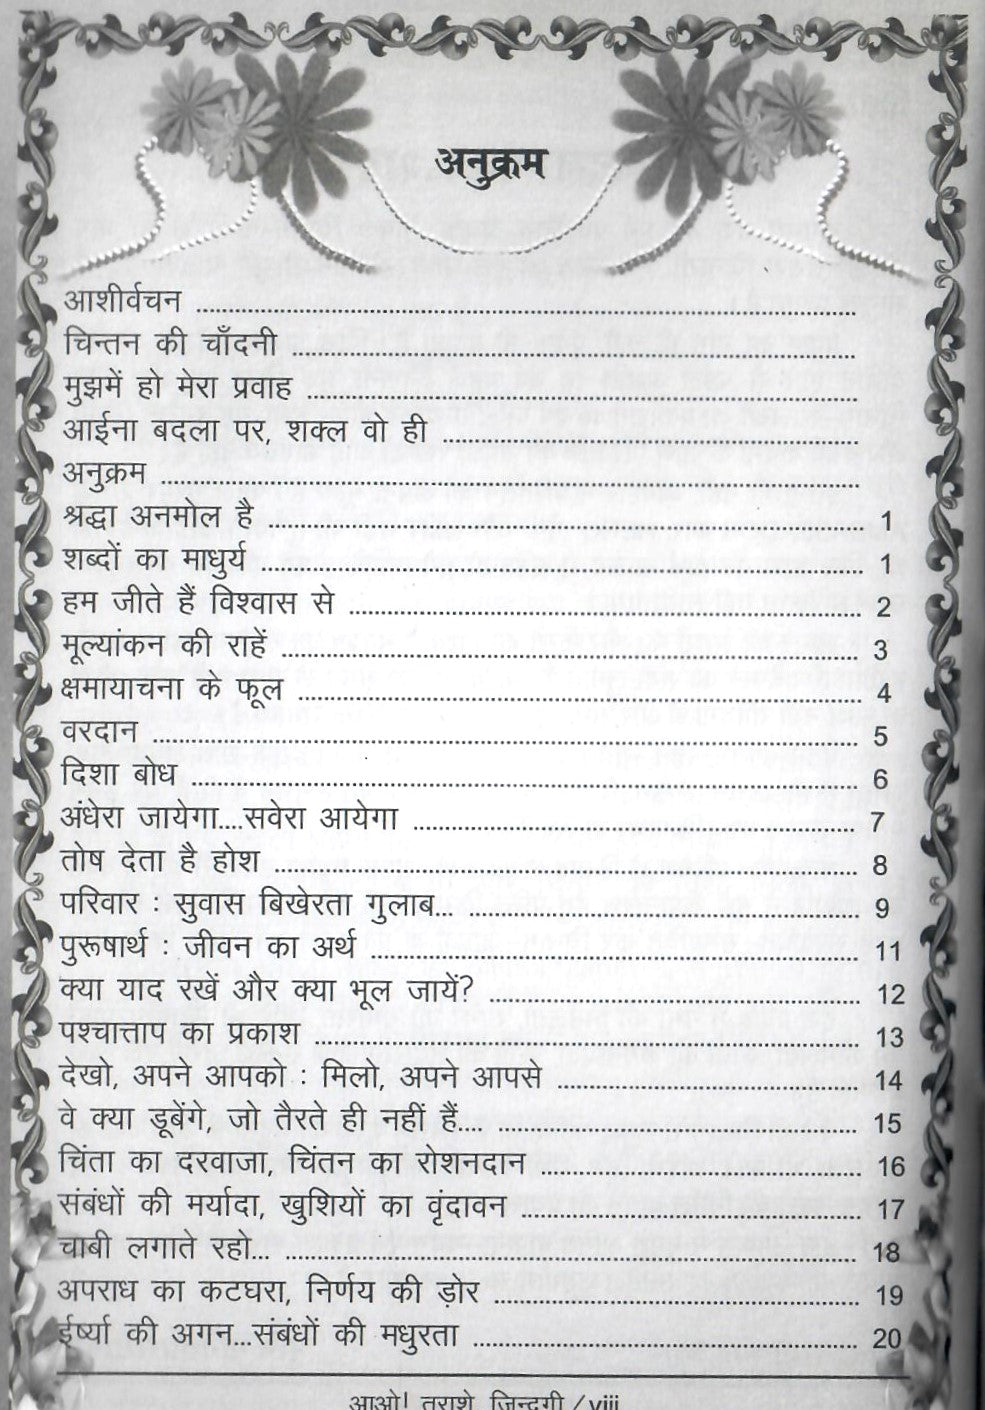 अनुक्रम
आशीर्वचन ........................................
चिन्तन की चाँदनी ........................................
मुझमें हो मेरा प्रवाह ........................................
आईना बदला पर, शक्ल वो ही ........................................
अनुक्रम ........................................
श्रद्धा अनमोल है ........................................ 1
शब्दों का माधुर्य ........................................ 1
हम जीते हैं विश्वास से ........................................ 2
मूल्यांकन की राहें ........................................ 3
क्षमायाचना के फूल ........................................ 4
वरदान ........................................ 5
दिशा बोध ........................................ 6
अंधेरा जायेगा....सवेरा आयेगा ........................................ 7
तोष देता है होश ........................................ 8
परिवार : सुवास बिखेरता गुलाब... ........................................ 9
पुरूषार्थ : जीवन का अर्थ ........................................ 11
क्या याद रखें और क्या भूल जायें? ........................................ 12
पश्चात्ताप का प्रकाश ........................................ 13
देखो, अपने आपको : मिलो, अपने आपसे ........................................ 14
वे क्या डूबेंगे, जो तैरते ही नहीं हैं.... ........................................ 15
चिंता का दरवाजा, चिंतन का रोशनदान ........................................ 16
संबंधों की मर्यादा, खुशियों का वृंदावन ........................................ 17
चाबी लगाते रहो... ........................................ 18
अपराध का कटघरा, निर्णय की ड़ोर ........................................ 19
ईर्ष्या की अगन...संबंधों की मधुरता ........................................ 20
आओ! तराशे जिन्दगी / viii